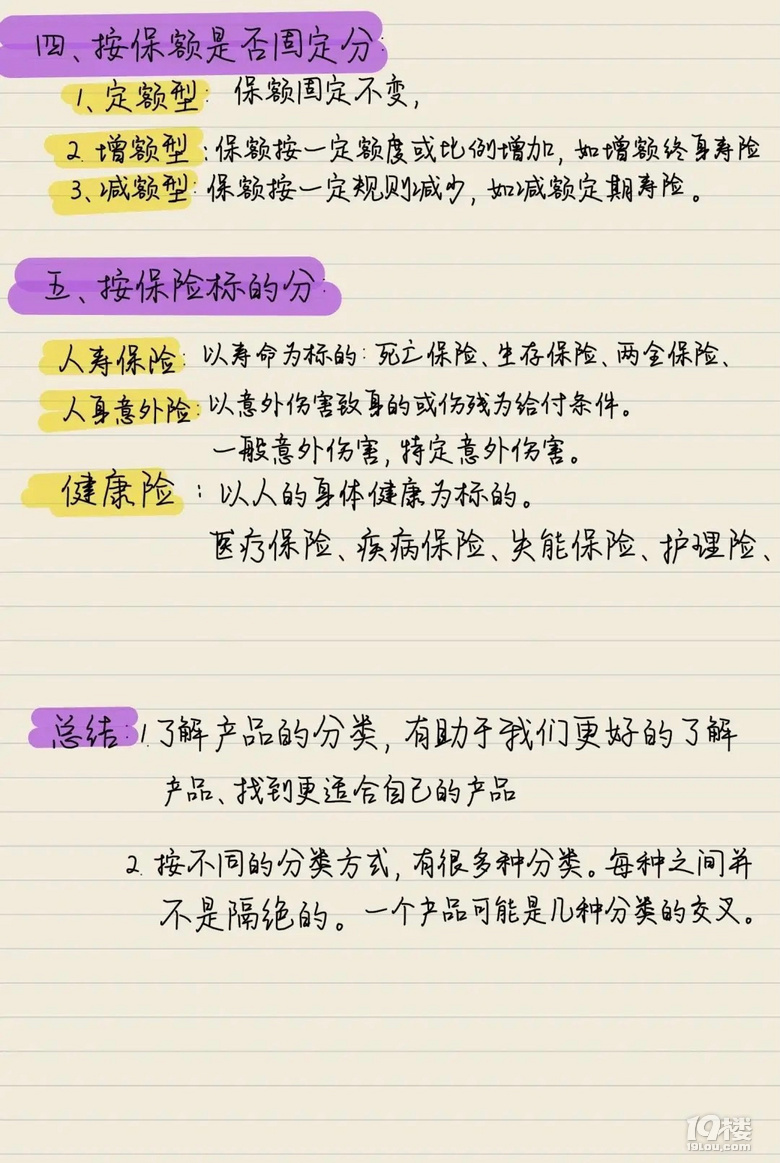 四、按保额是否固定分:
1、定额型: 保额固定不变,
2. 增额型:保额按一定额度或比例增加, 如增额终身寿险
3、减额型:保额按一定规则减少, 如减额定期寿险。
五、按保险标的分:
人寿保险: 以寿命为标的: 死亡保险、生存保险、两全保险、
人身意外险:以意外伤害致身的或伤残为给付条件。
一般意外伤害, 特定意外伤害。
健康险 : 以人的身体健康为标的。
医疗保险、疾病保险、失能保险、护理险、
总结: 1.了解产品的分类, 有助于我们更好的了解
产品、找到更适合自己的产品
2. 按不同的分类方式, 有很多种分类。每种之间并
不是隔绝的。一个产品可能是几种分类的交叉。
19楼
19lou.com